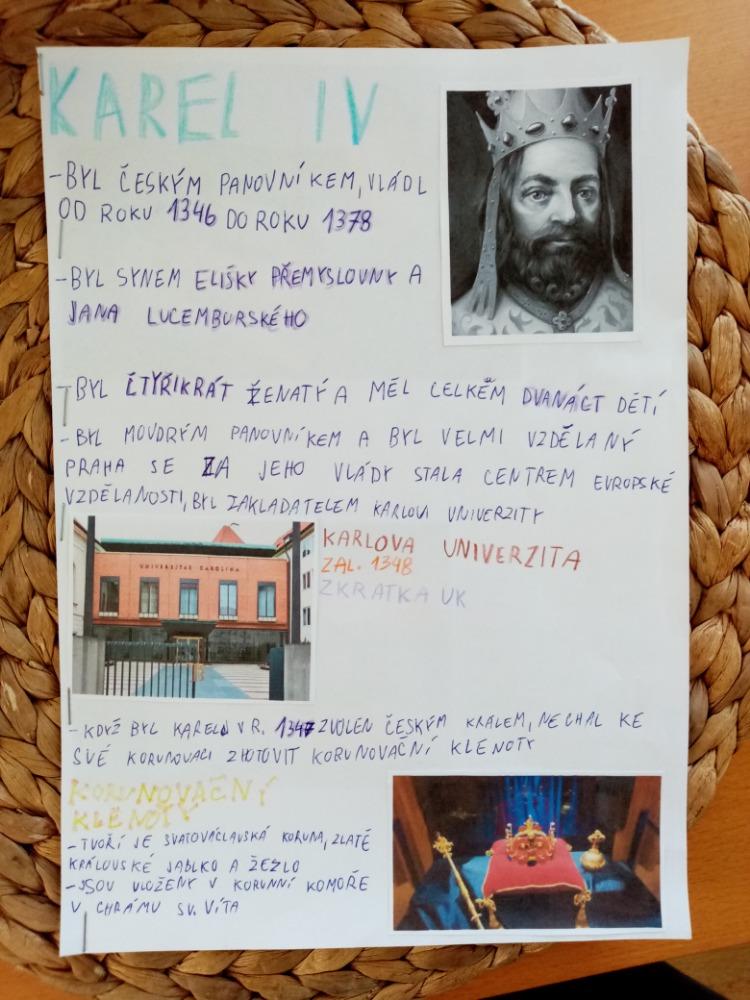 KAREL IV
-BYL ČESKÝM PANOVNÍKEM, VLÁDL
OD ROKU 1346 DO ROKU 1378
-BYL SYNEM ELIŠKY PŘEMYSLOVNY A
JANA LUCEMBURSKÉHO
-BYL ČTYŘIKRÁT ŽENATÝ A MĚL CELKĚM DVANÁCT DĚTÍ
-BYL MOUDRÝM PANOVNÍKEM A BYL VELMI VZDĚLANÝ
PRAHA SE ZA JEHO VLÁDY STALA CENTREM EVROPSKÉ
VZDĚLANOSTI, BYL ZAKLADATELEM KARLOVI UNIVERZITY
UNIVERSITAS CAROLINA
KARLOVA UNIVERZITA
ZAL. 1348
ZKRATKA UK
-KDYŽ BYL KAREL V R. 1347 ZVOLEN ČESKÝM KRÁLEM, NECHAL KE
SVÉ KORUNOVACI ZHOTOVIT KORUNOVAČNÍ KLENOTY
KORUNOVAČNÍ
KLENOTY
-TVOŘÍ JE SVATOVÁCLAVSKÁ KORUNA, ZLATÉ
KRÁLOVSKÉ JABLKO A ŽEZLO
-JSOU ULOŽENY V KORUNNÍ KOMOŘE
V CHRÁMU SV. VÍTA